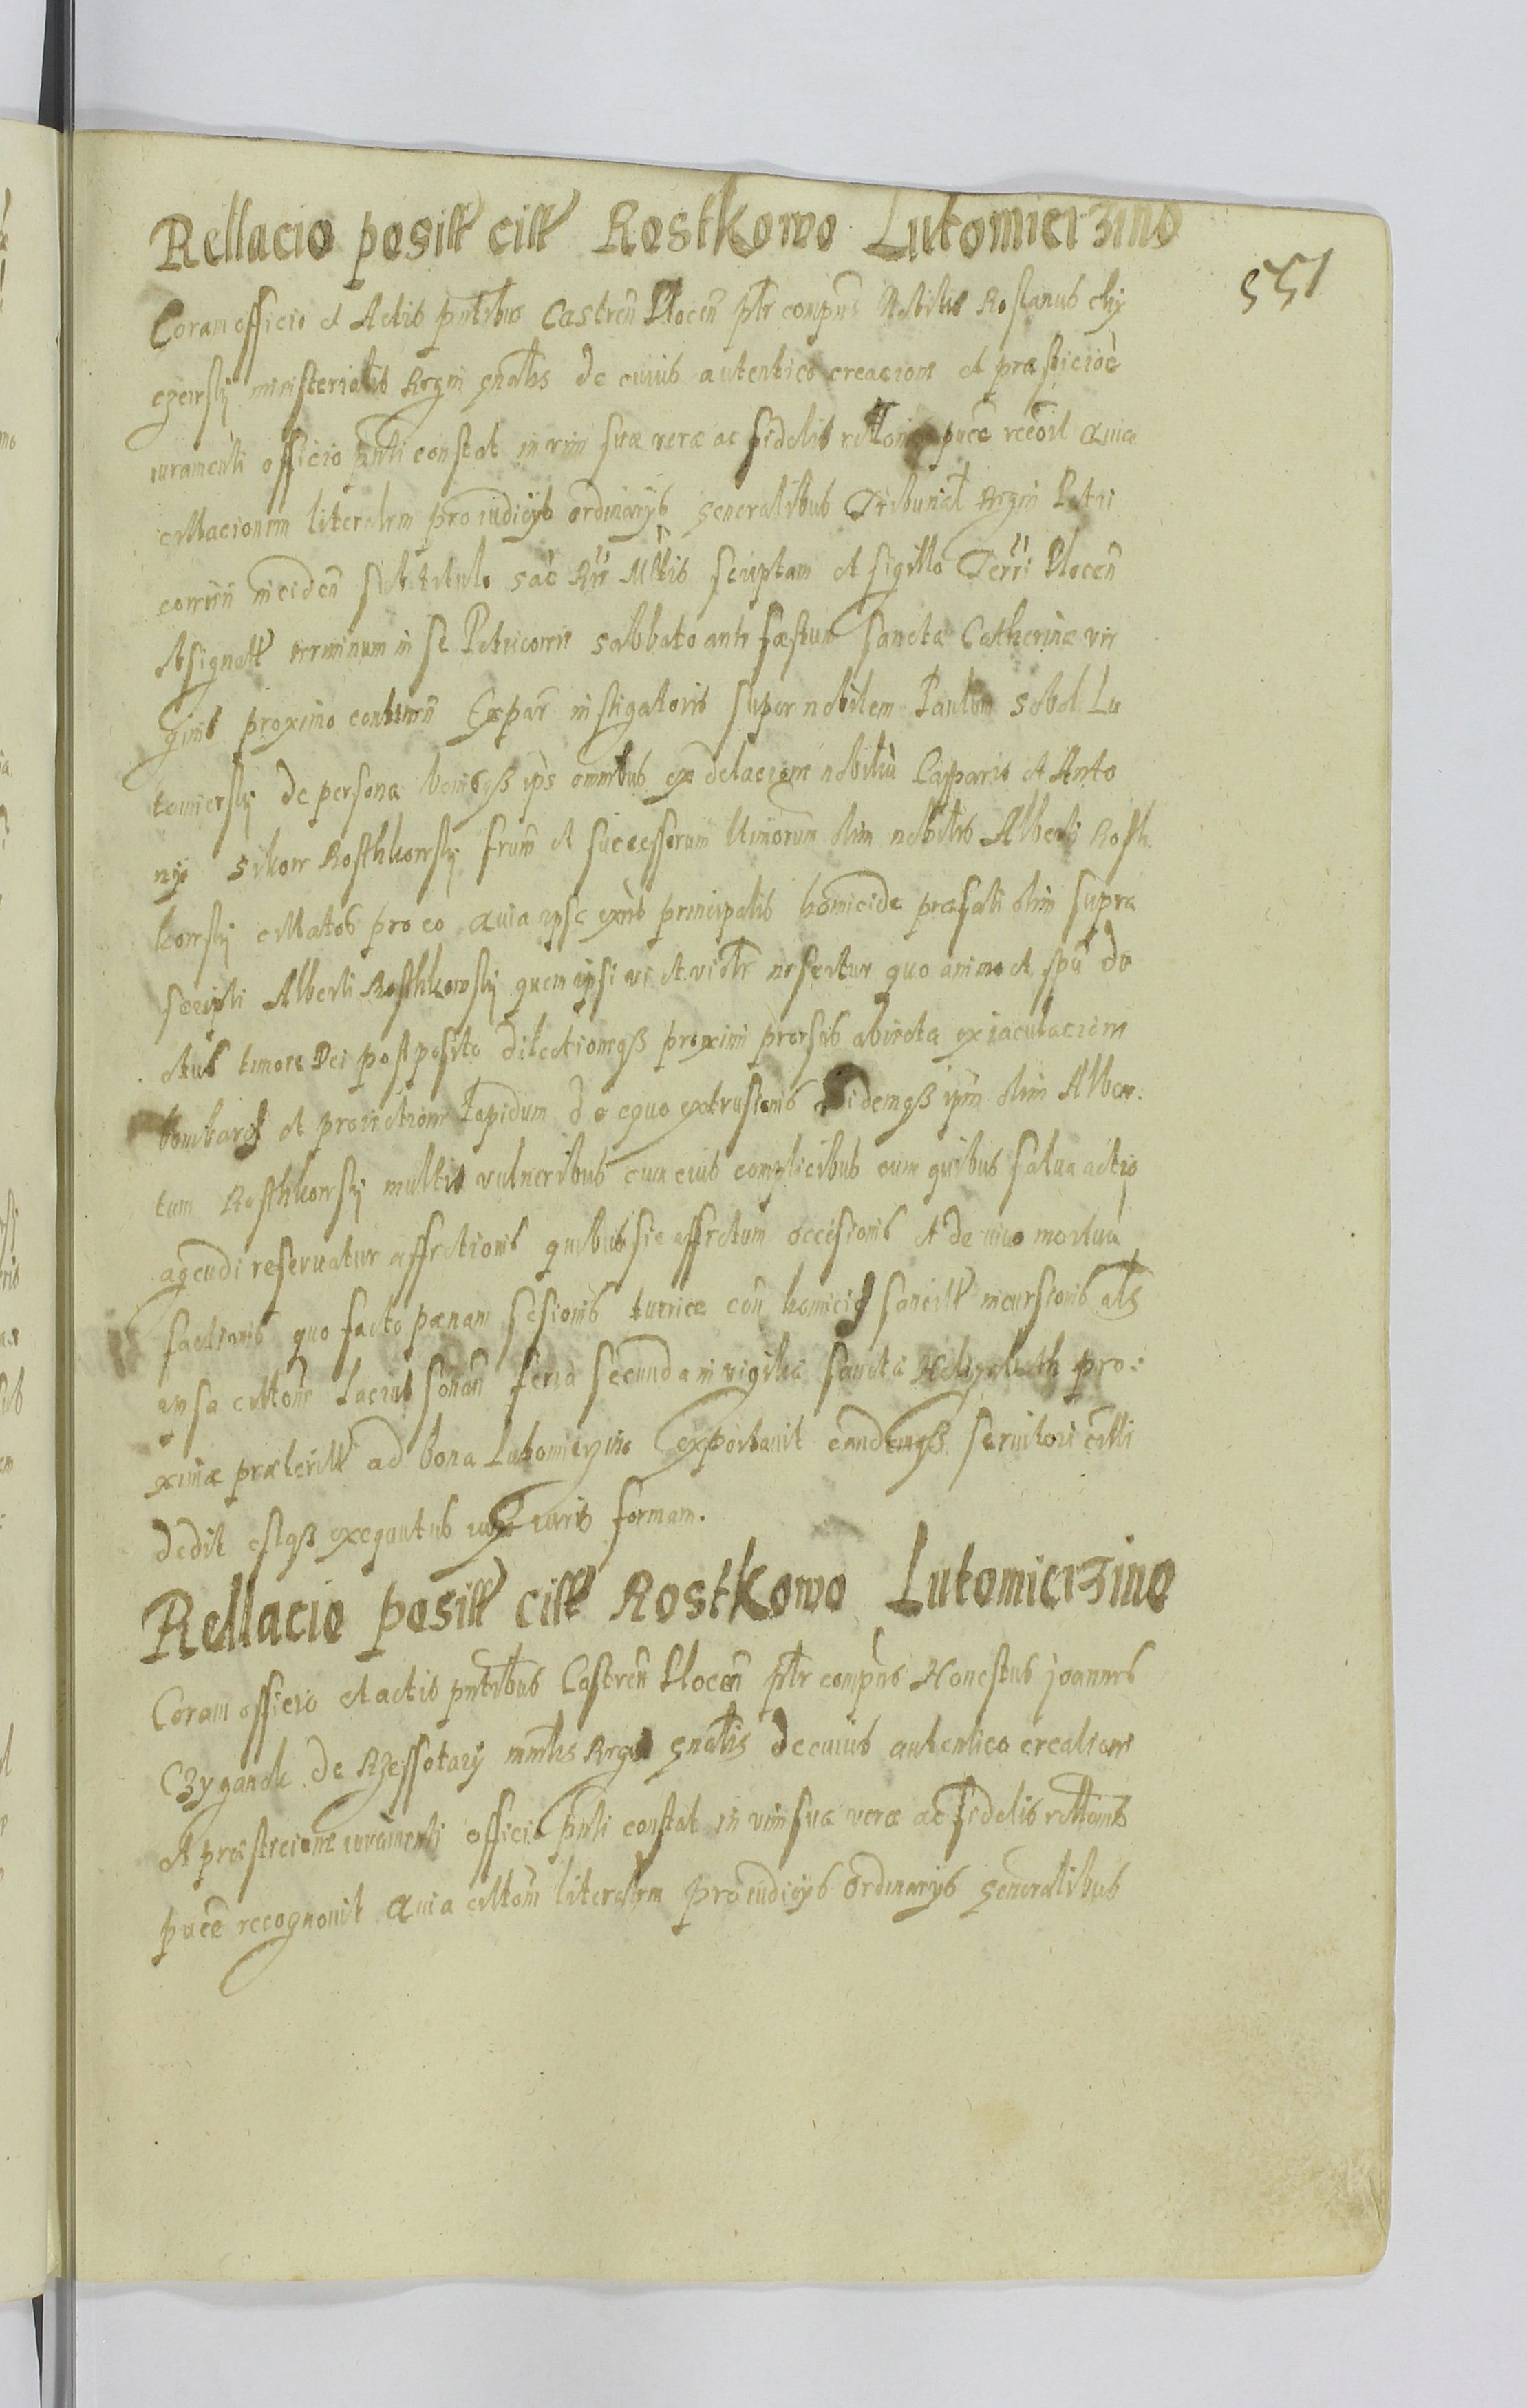 Rellacio posill cill Rostkowo Lutomierzino
551
Coram officio et Actis pntibus Castren Plocen pltr compns Nobilis Roslanus chy
czewsky ministerialis Regni gnalis de cuius autentico creacione et præsticioe
iuramenti officio pnti constat in vim suæ veræ ac fidelis rellonis puce recoit Quia
citacionem literalem pro iudicijs ordinarijs generalibus Tribunal Regni Petri
coviñ inciden sub titulo sac Rii Mtis scriptam et sigillo Terri Plocen
obsignatt terminum in se Petricovie sabbato ante fæstum sanctæ Catherinæ vir
ginis proximo continen Ex par instigatoris super nobilem Paulum sobol Lu
tomiersky de persona bonisqß ips omnibus ex delacione nobiliu Casparis et Anto
nij sikorz Rosthkowsky frum et successorum binorum olim nobilis Alberti Rosth.
kowsky citatos pro eo Quia ipse exns principalis homicida præfati olim supra
scripti Alberti Rosthkowsky quem ipsi vi et violtr refertur quo animo et spu du
ctus timore Dei postposito dilectioneqß proximi prorsus abiecta exiaculacione
bombard et proiectione lapidum de equo extrusionis ibidemqß ipm olim Alber.
tum Rosthkowsky multis vulneribus cum eius complicibus cum quibus salua actio
agendi reseruatur affectionis quibus sic effectum occisionis et de viuo mortuu
factionis quo facto pænam sessionis turricæ con homicid sancitt incursionis als
ipsa cittone lacius sonan feria secunda in vigilia sanctæ Helyzabeth pro:
ximæ præteritt ad bona Lutomierzino exportauit eandemqß seruitori citti
dedit estqß exequutus iuxta iuris formam.
Rellacio posill cill Rostkowo Lutomierzino
Coram officio et actis pntibus Castren Plocen pltr compns Honestus joannes
Czygank de Rzessotary mnlis Regni gnalis de cuius autentica creatione
et præsticione iuramenti officio pnti constat in vim suæ veræ ac fidelis rellonis
puce recognouit Quia cittom literalem pro iudicijs ordinarijs generalibus